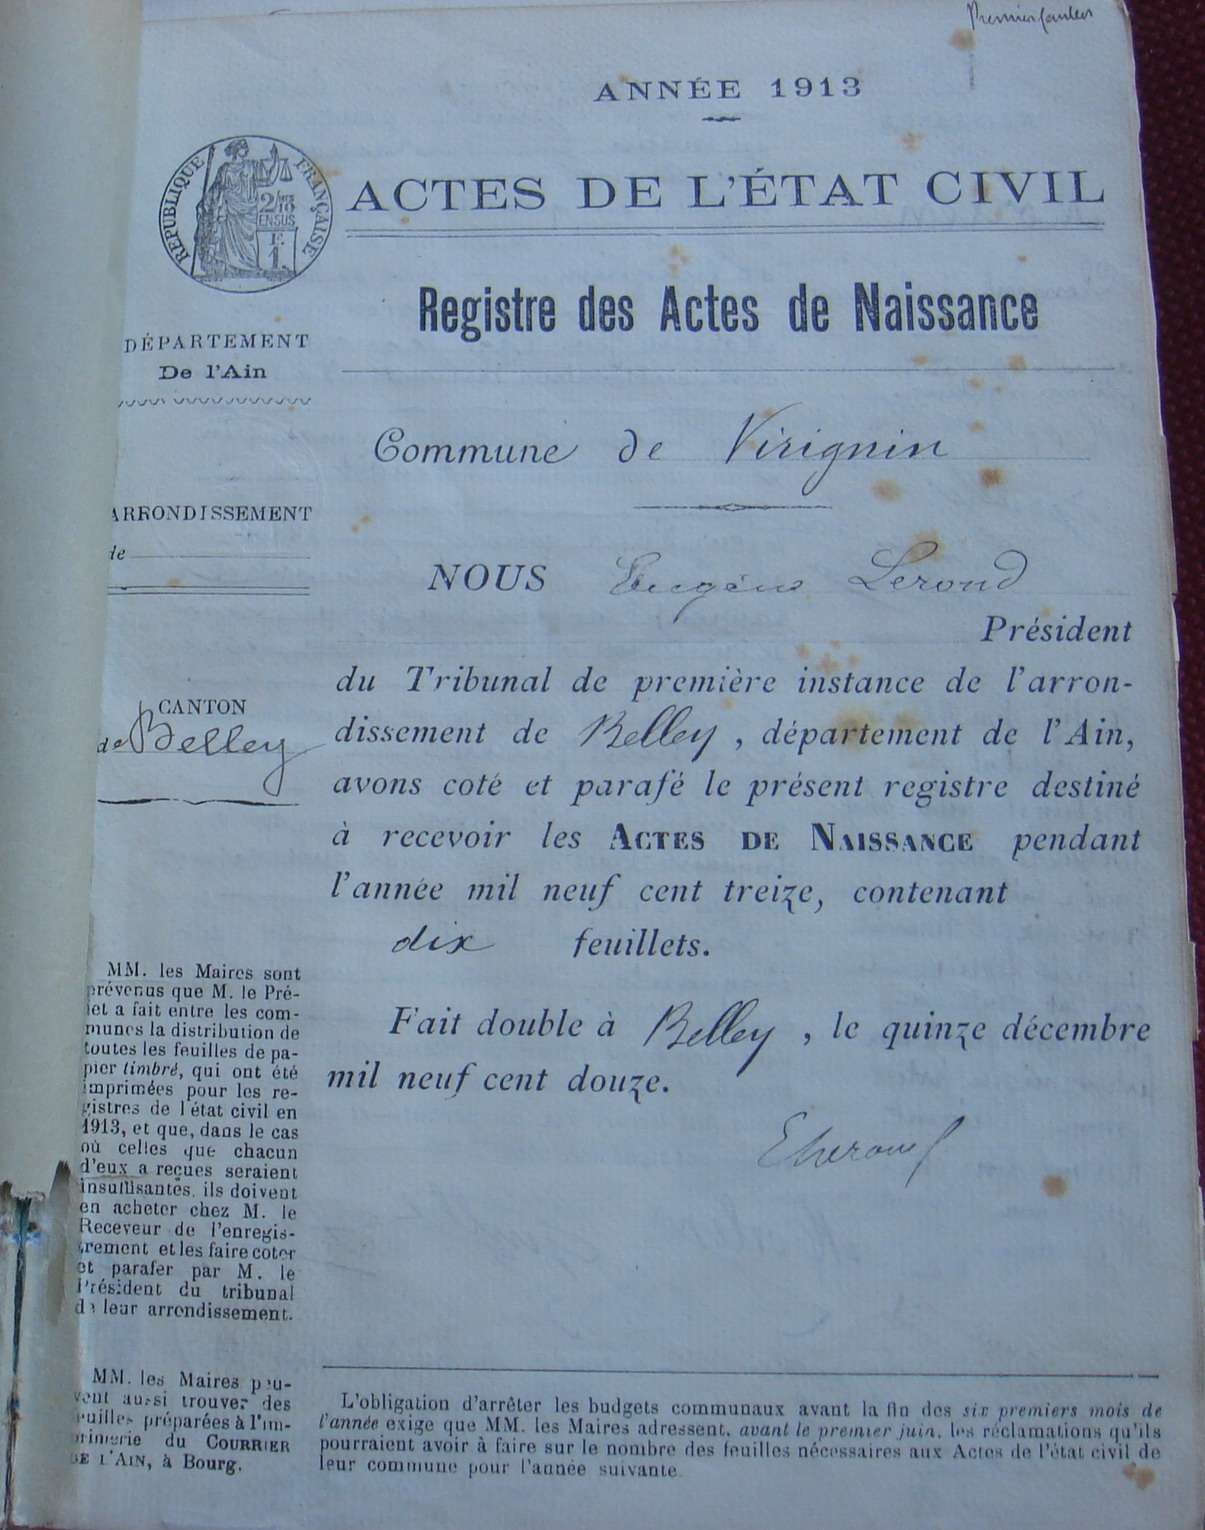 Premier feuillet
ANNÉE 1913
RÉPUBLIQUE FRANÇAISE
2/10
EN SUS
1F.
ACTES DE L'ÉTAT CIVIL
Registre des Actes de Naissance
DÉPARTEMENT
De l'Ain
Commune de Virignin
ARRONDISSEMENT
de
NOUS Eugène Lerond
Président
du Tribunal de première instance de l'arron-
dissement de Belley, département de l'Ain,
avons coté et parafé le présent registre destiné
à recevoir les ACTES DE NAISSANCE pendant
l'année mil neuf cent treize, contenant
dix feuillets.
Fait double à Belley, le quinze décembre
mil neuf cent douze.
CANTON
de Belley
MM. les Maires sont
prévenus que M. le Pré-
fet a fait entre les com-
munes la distribution de
toutes les feuilles de pa-
pier timbré, qui ont été
imprimées pour les re-
gistres de l'état civil en
1913, et que, dans le cas
où celles que chacun
d'eux a reçues seraient
insuffisantes, ils doivent
en acheter chez M. le
Receveur de l'enregis-
trement et les faire coter
et parafer par M. le
Président du tribunal
de leur arrondissement.
MM. les Maires peu-
vent aussi trouver des
feuilles préparées à l'im-
primerie du COURRIER
DE L'AIN, à Bourg.
L'obligation d'arrêter les budgets communaux avant la fin des six premiers mois de
l'année exige que MM. les Maires adressent, avant le premier juin, les réclamations qu'ils
pourraient avoir à faire sur le nombre des feuilles nécessaires aux Actes de l'état civil de
leur commune pour l'année suivante.